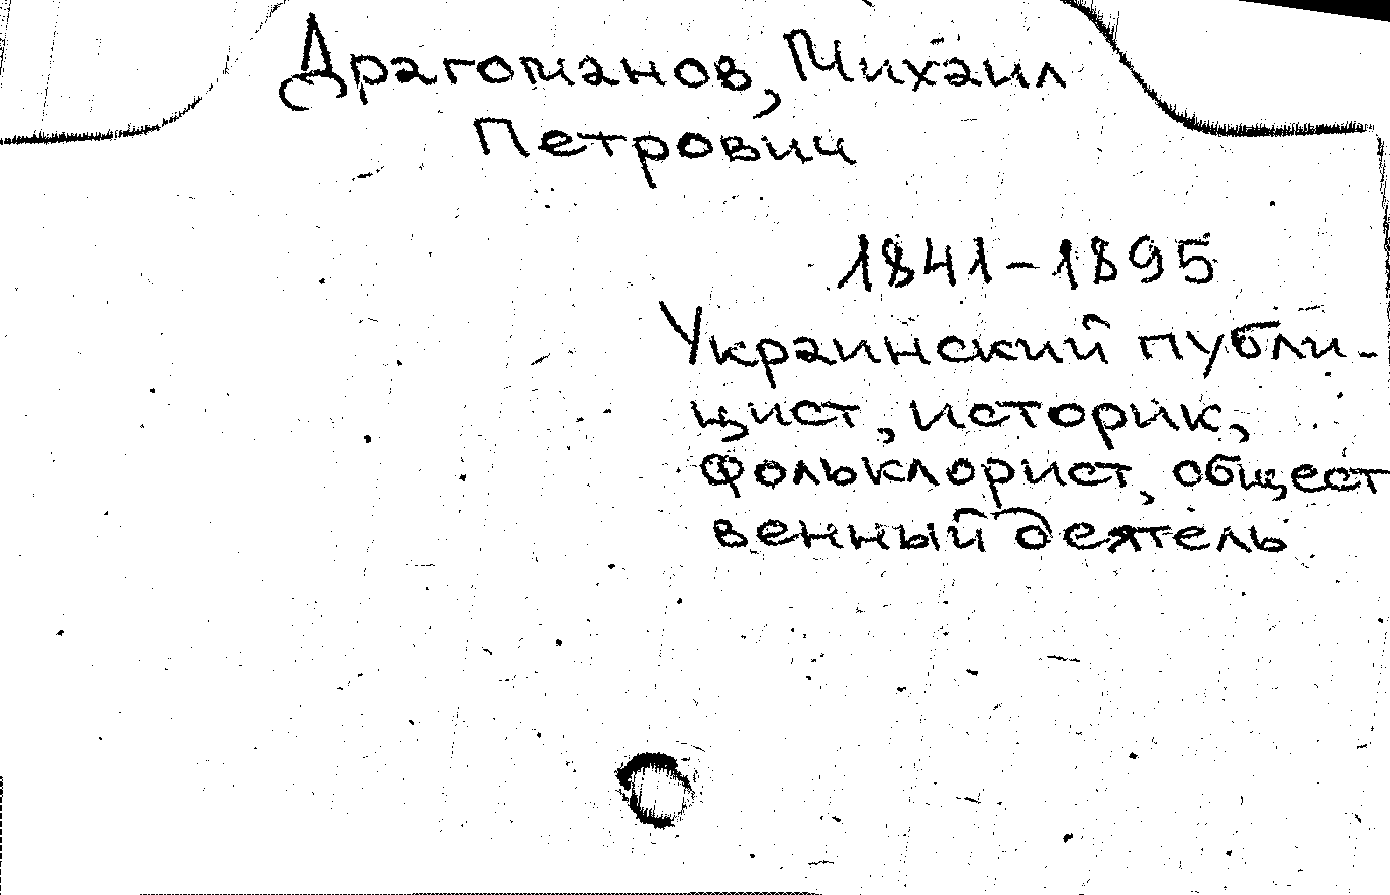 Драгоманов, Михаил
Петрович
1841-1895
Украинский публи-
цист, историк,
фольклорист, общест
венный деятель